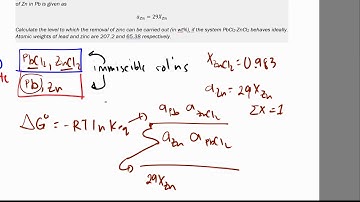 of Zn in Pb is given as
a_Zn = 29X_Zn
Calculate the level to which the removal of zinc can be carried out (in wt%), if the system PbCl₂-ZnCl₂ behaves ideally.
Atomic weights of lead and zinc are 207.2 and 65.38 respectively.
PbCl₂, ZnCl₂
Pb, Zn
immiscible sol'ns
X_ZnCl₂ = 0.983
a_Zn = 29X_Zn
ΣX = 1
ΔG° = -RT ln K_eq
a_Pb a_ZnCl₂
a_Zn a_PbCl₂
29X_Zn